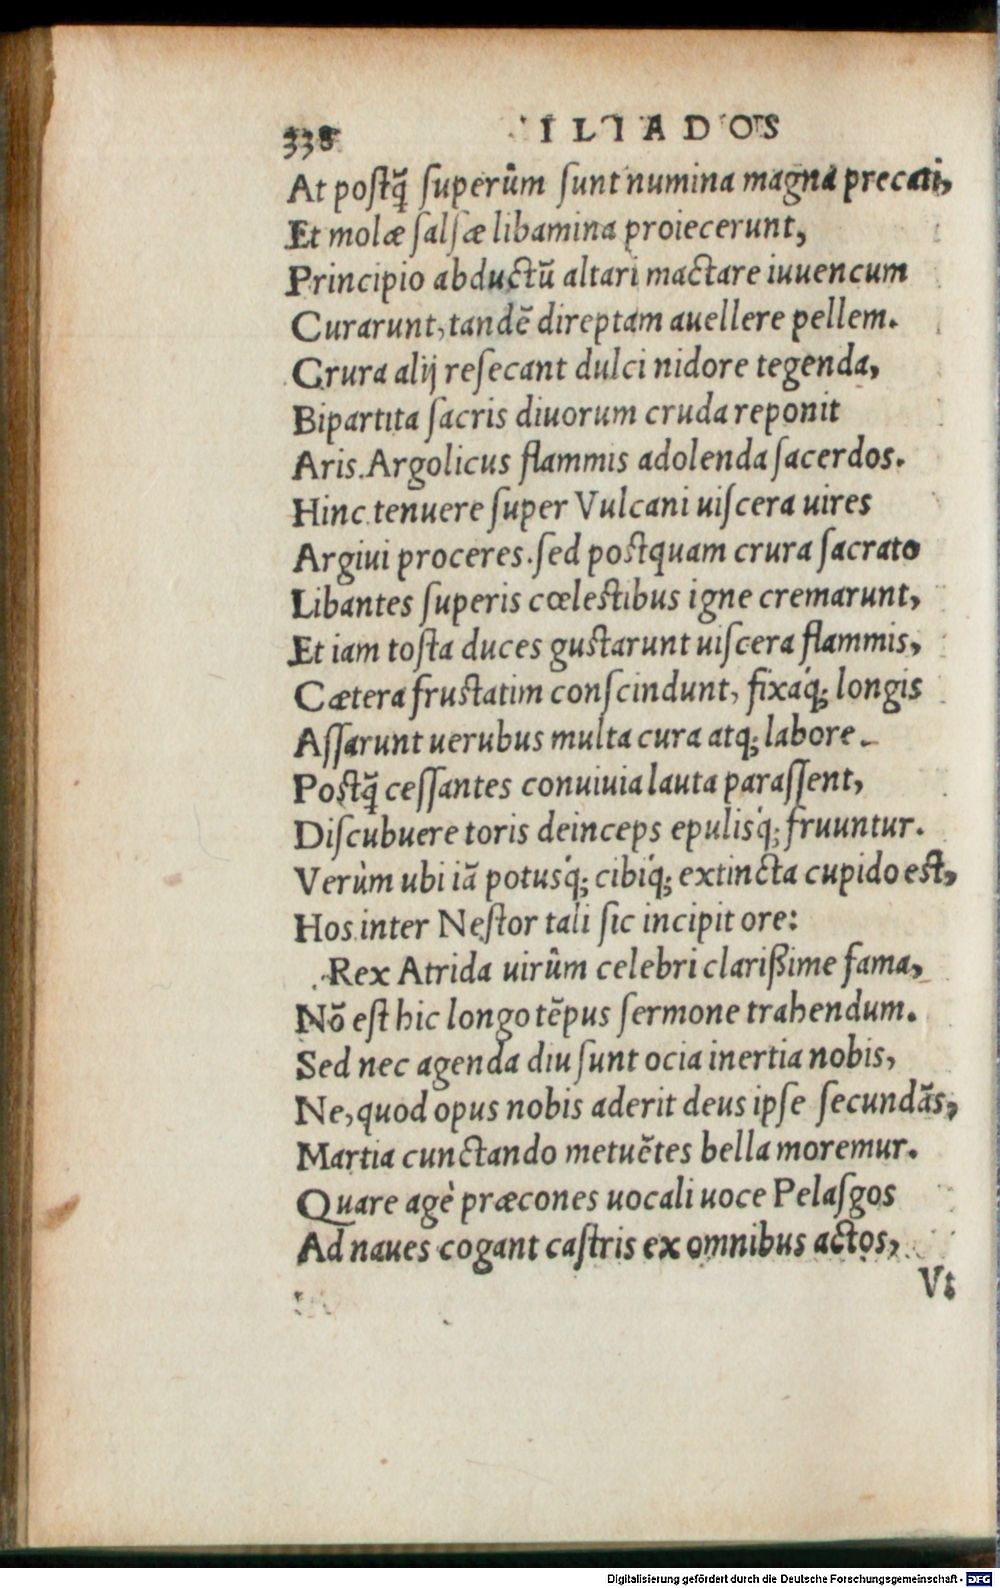 338 ILIADOS
At postq̃ superûm sunt numina magna precati,
Et molæ salsæ libamina proiecerunt,
Principio abductũ altari mactare iuuencum
Curarunt, tandẽ direptam auellere pellem.
Crura alij resecant dulci nidore tegenda,
Bipartita sacris diuorum cruda reponit
Aris Argolicus flammis adolenda sacerdos.
Hinc tenuere super Vulcani uiscera uires
Argiui proceres. sed postquam crura sacrato
Libantes superis cœlestibus igne cremarunt,
Et iam tosta duces gustarunt uiscera flammis,
Cætera frustatim conscindunt, fixaq́; longis
Assarunt uerubus multa cura atq; labore.
Postq̃ cessantes conuiuia lauta parassent,
Discubuere toris deinceps epulisq́; fruuntur.
Verùm ubi iã potusq́; cibiq́; extincta cupido est,
Hos inter Nestor tali sic incipit ore:
Rex Atrida uirûm celebri clarißime fama,
Nõ est hic longo tẽpus sermone trahendum.
Sed nec agenda diu sunt ocia inertia nobis,
Ne, quod opus nobis aderit deus ipse secundãs,
Martia cunctando metuẽtes bella moremur.
Quare agè præcones uocali uoce Pelasgos
Ad naues cogant castris ex omnibus actos,
Vt
Digitalisierung gefördert durch die Deutsche Forschungsgemeinschaft - DFG